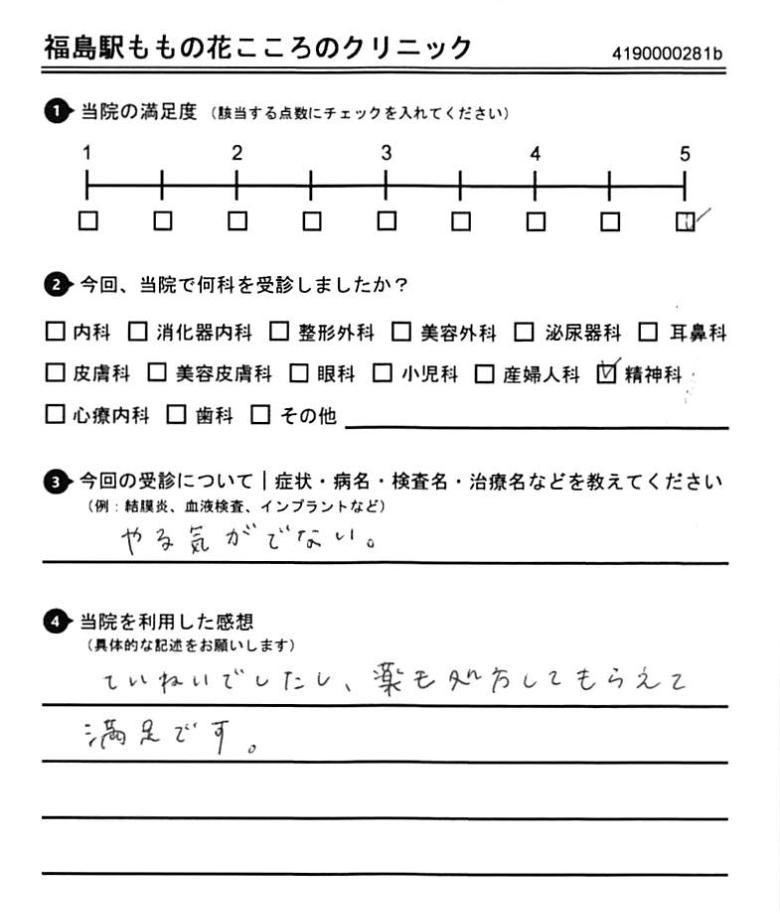 福島駅ももの花こころのクリニック 4190000281b
1 当院の満足度 (該当する点数にチェックを入れてください)
1 2 3 4 5
2 今回、当院で何科を受診しましたか？
内科 消化器内科 整形外科 美容外科 泌尿器科 耳鼻科
皮膚科 美容皮膚科 眼科 小児科 産婦人科 精神科
心療内科 歯科 その他
3 今回の受診について｜症状・病名・検査名・治療名などを教えてください
(例：結膜炎、血液検査、インプラントなど)
やる気がでない。
4 当院を利用した感想
(具体的な記述をお願いします)
ていねいでしたし、薬も処方してもらえて
満足です。